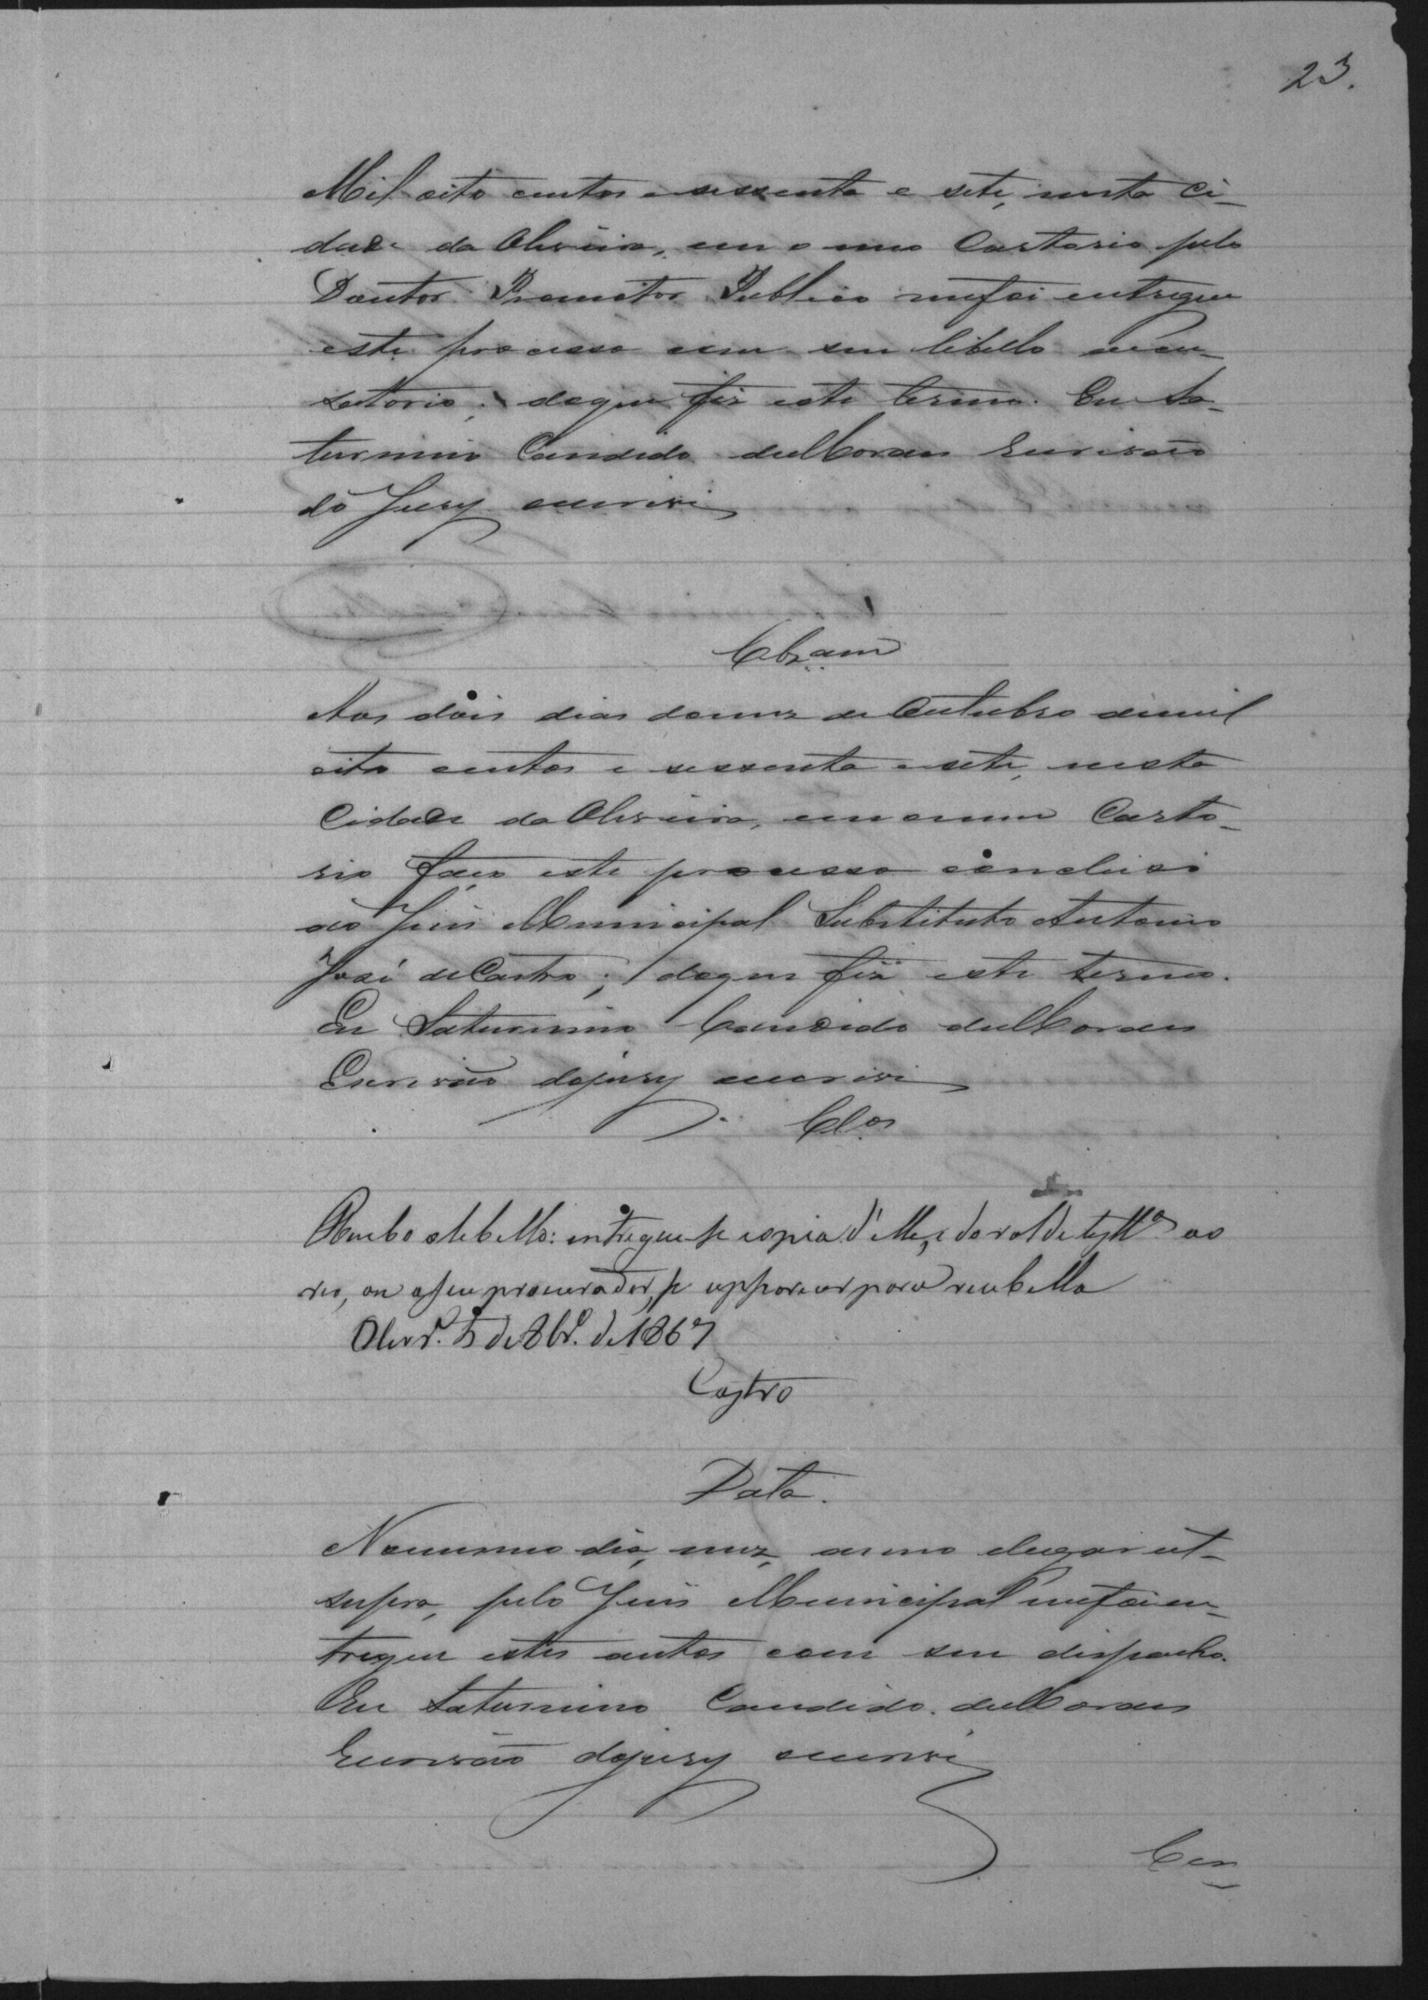 23.
Mil oito centos e sessenta e sete, nesta Ci-
dade da Oliveira, em o meu Cartorio pelo
Doutor Promotor Publico me foi entregue
este processo com seu libello accu-
satorio; de que fiz este termo. Eu Sa-
turnino Candido de Moraes Escrivão
do Jury escrevi
Clzam
Aos dois dias do mez de Outubro de mil
oito centos e sessenta e sete, nesta
Cidade da Oliveira, em o meu Carto-
rio faço este processo concluso
ao Juis Municipal Substituto Antonio
José de Castro; de que fiz este termo.
Eu Saturnino Candido de Moraes
Escrivão do jury escrivi
Clos
Recebo o libello: entregue se copia d'elle, e do rol de testas ao
reo, ou a seu procurador, se apparecer para recebella
Olivra. 5 de 8bro. de 1867
Castro
Data.
No mesmo dia, mez, anno e lugar ut-
supra, pelo Juis Municipal me foi en-
tregue estes autos com seu dispacho.
Eu Saturnino Candido de Moraes
Escrivão do jury escrivi
Cer-